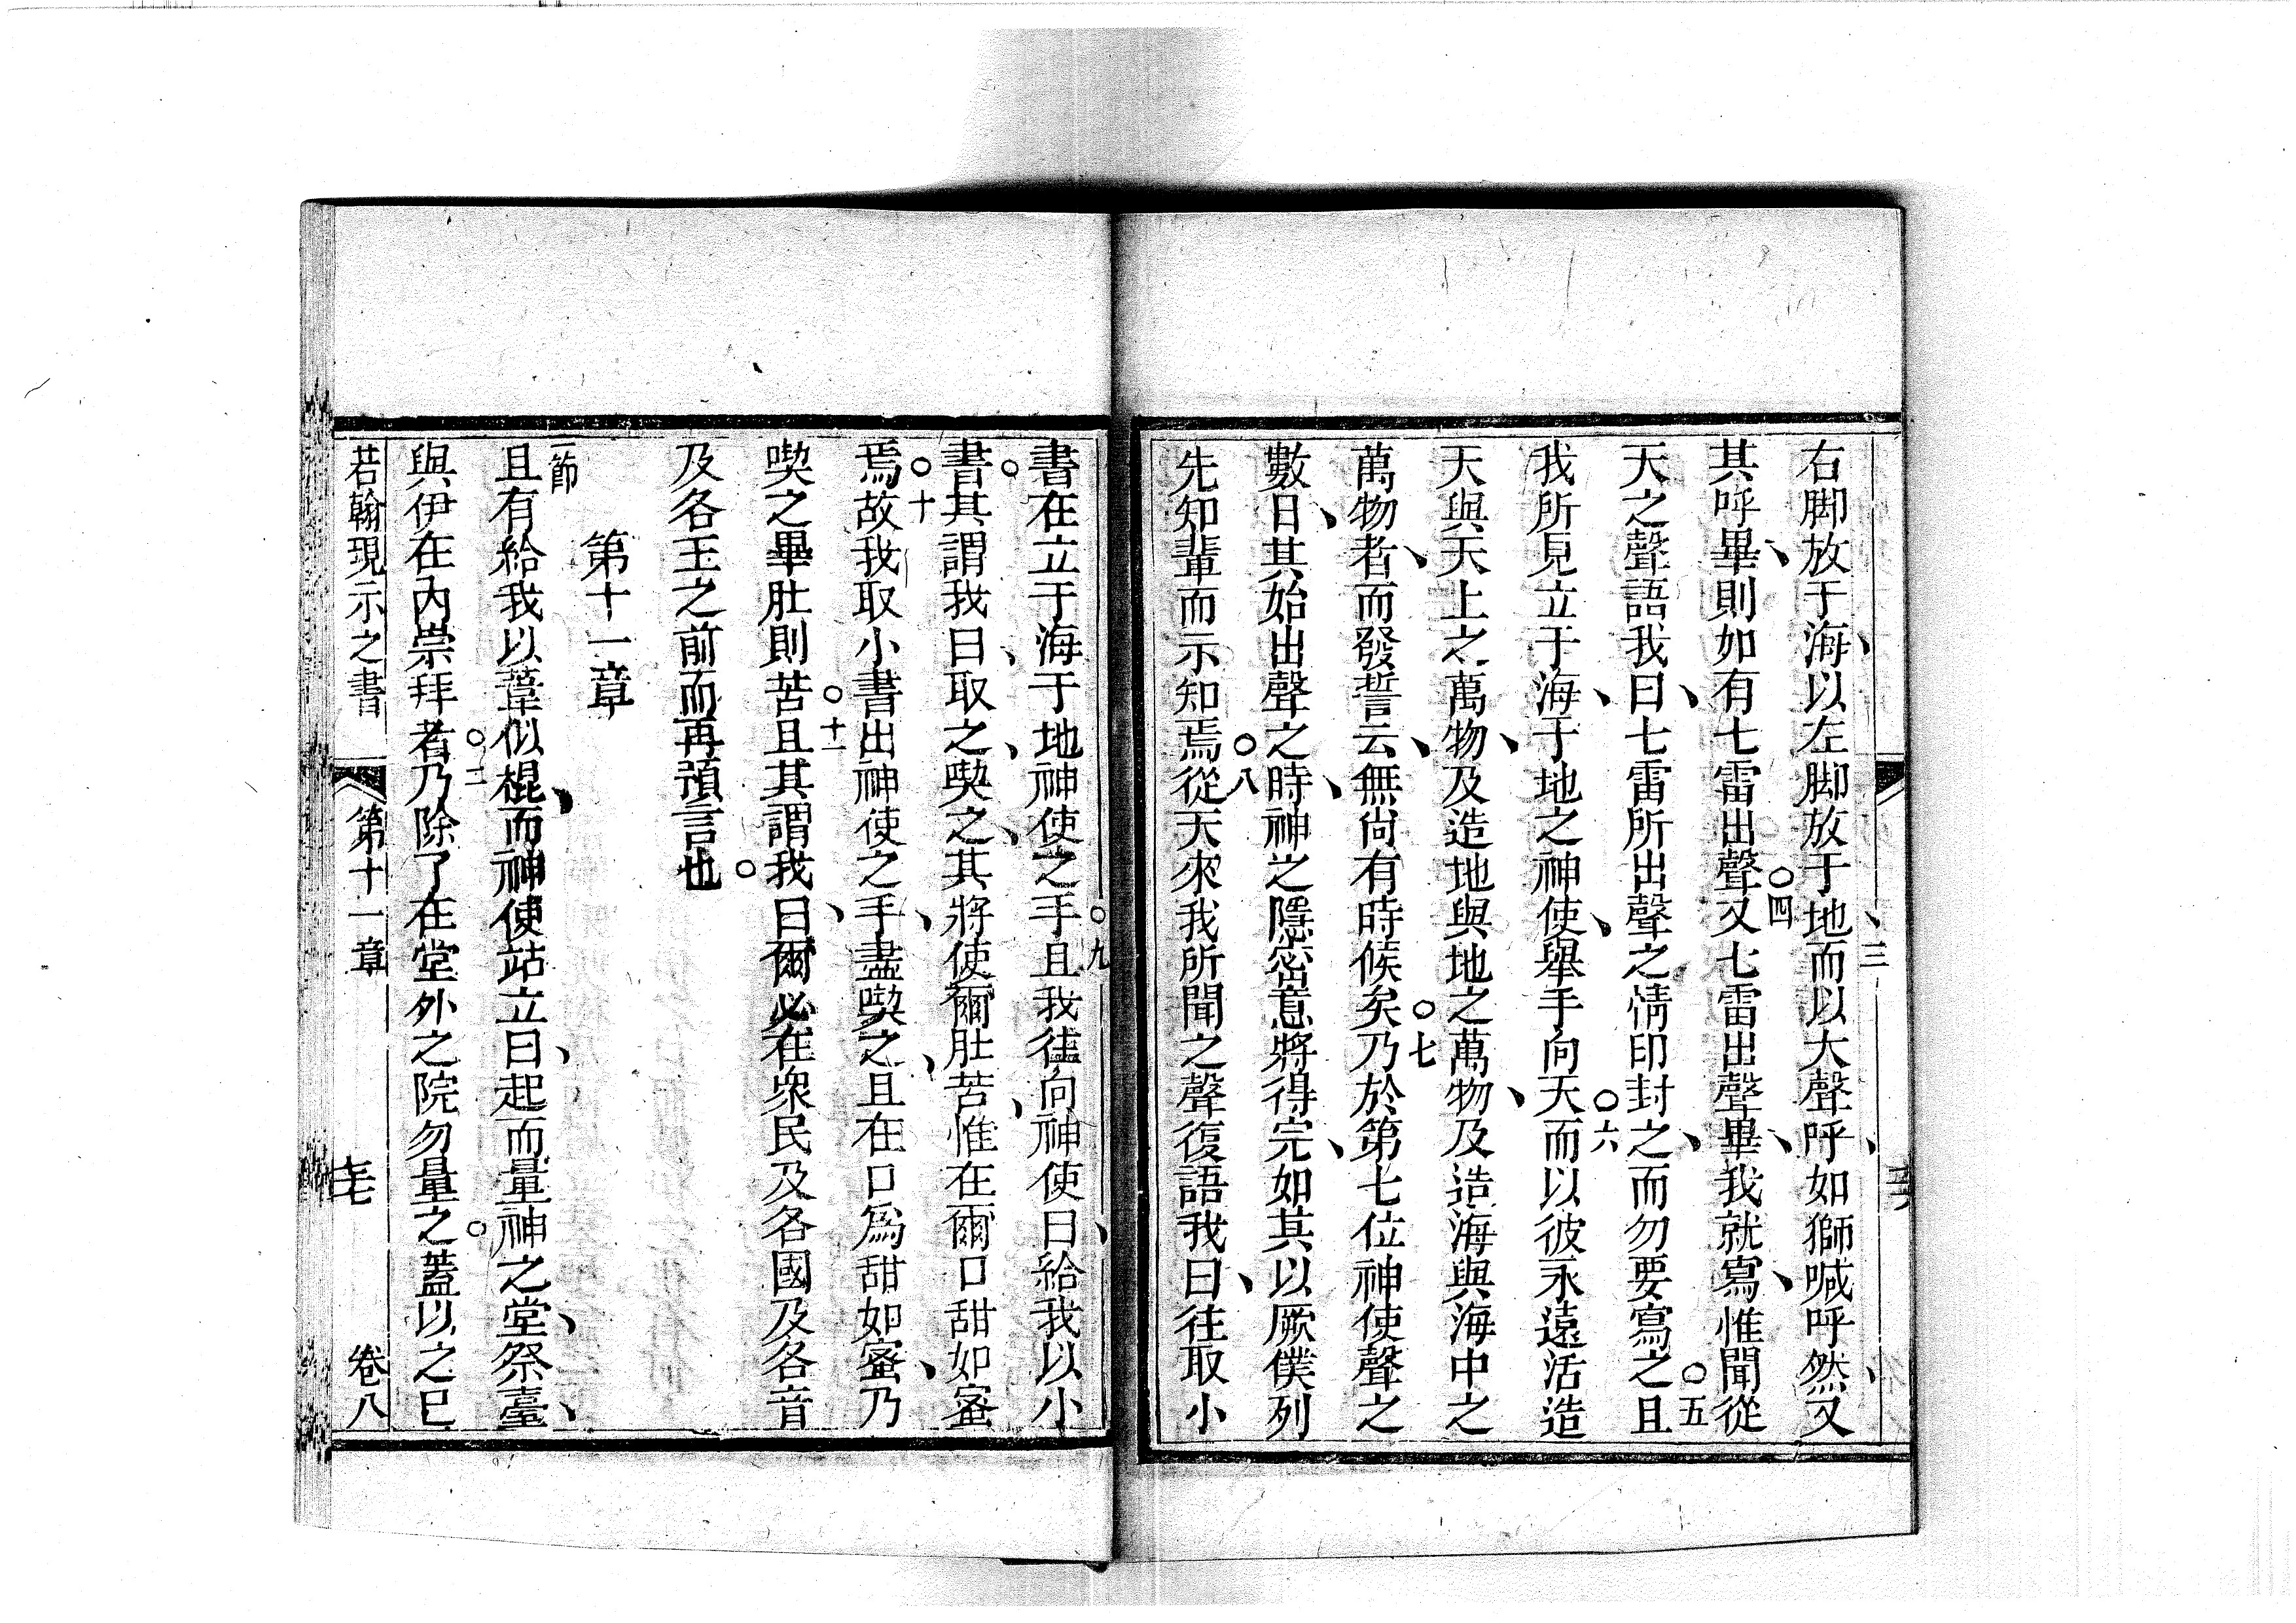 右脚放于海、以左脚放于地、三而以大聲呼、如獅喊呼然、又
其呼畢、則如有七雷出聲○四又七雷出聲畢、我就寫、惟聞從
天之聲語我、曰七雷所出聲之情印封之、而勿要寫之○五且
我所見立于海、于地之神使、舉手向天○六而以彼永遠活造
天與天上之萬物、及造地與地之萬物、及造海與海中之
萬物者、而發誓云、無尚有時候矣○七乃於第七位神使聲之
數日、其始出聲之時、神之隱密意將得完、如其以厥僕列
先知輩而示知焉○八從天來我所聞之聲復語我曰、往取小
書在立于海于地神使之手○九且我往向神使曰、給我以小
書○其謂我曰、取之、喫之、其將使爾肚苦、惟在爾口甜如蜜
焉○十故我取小書出神使之手、盡喫之、且在口爲甜如蜜、乃
喫之畢肚則苦○十一且其謂我○曰、爾必在衆民及各國及各音
及各王之前而再預言也
第十一章
一節
且有給我以葦似棍、而神使站立曰、起而量神之堂、祭臺、
與伊在內崇拜者○二乃除了在堂外之院勿量之○蓋以之已
若翰現示之書 第十一章 卷八